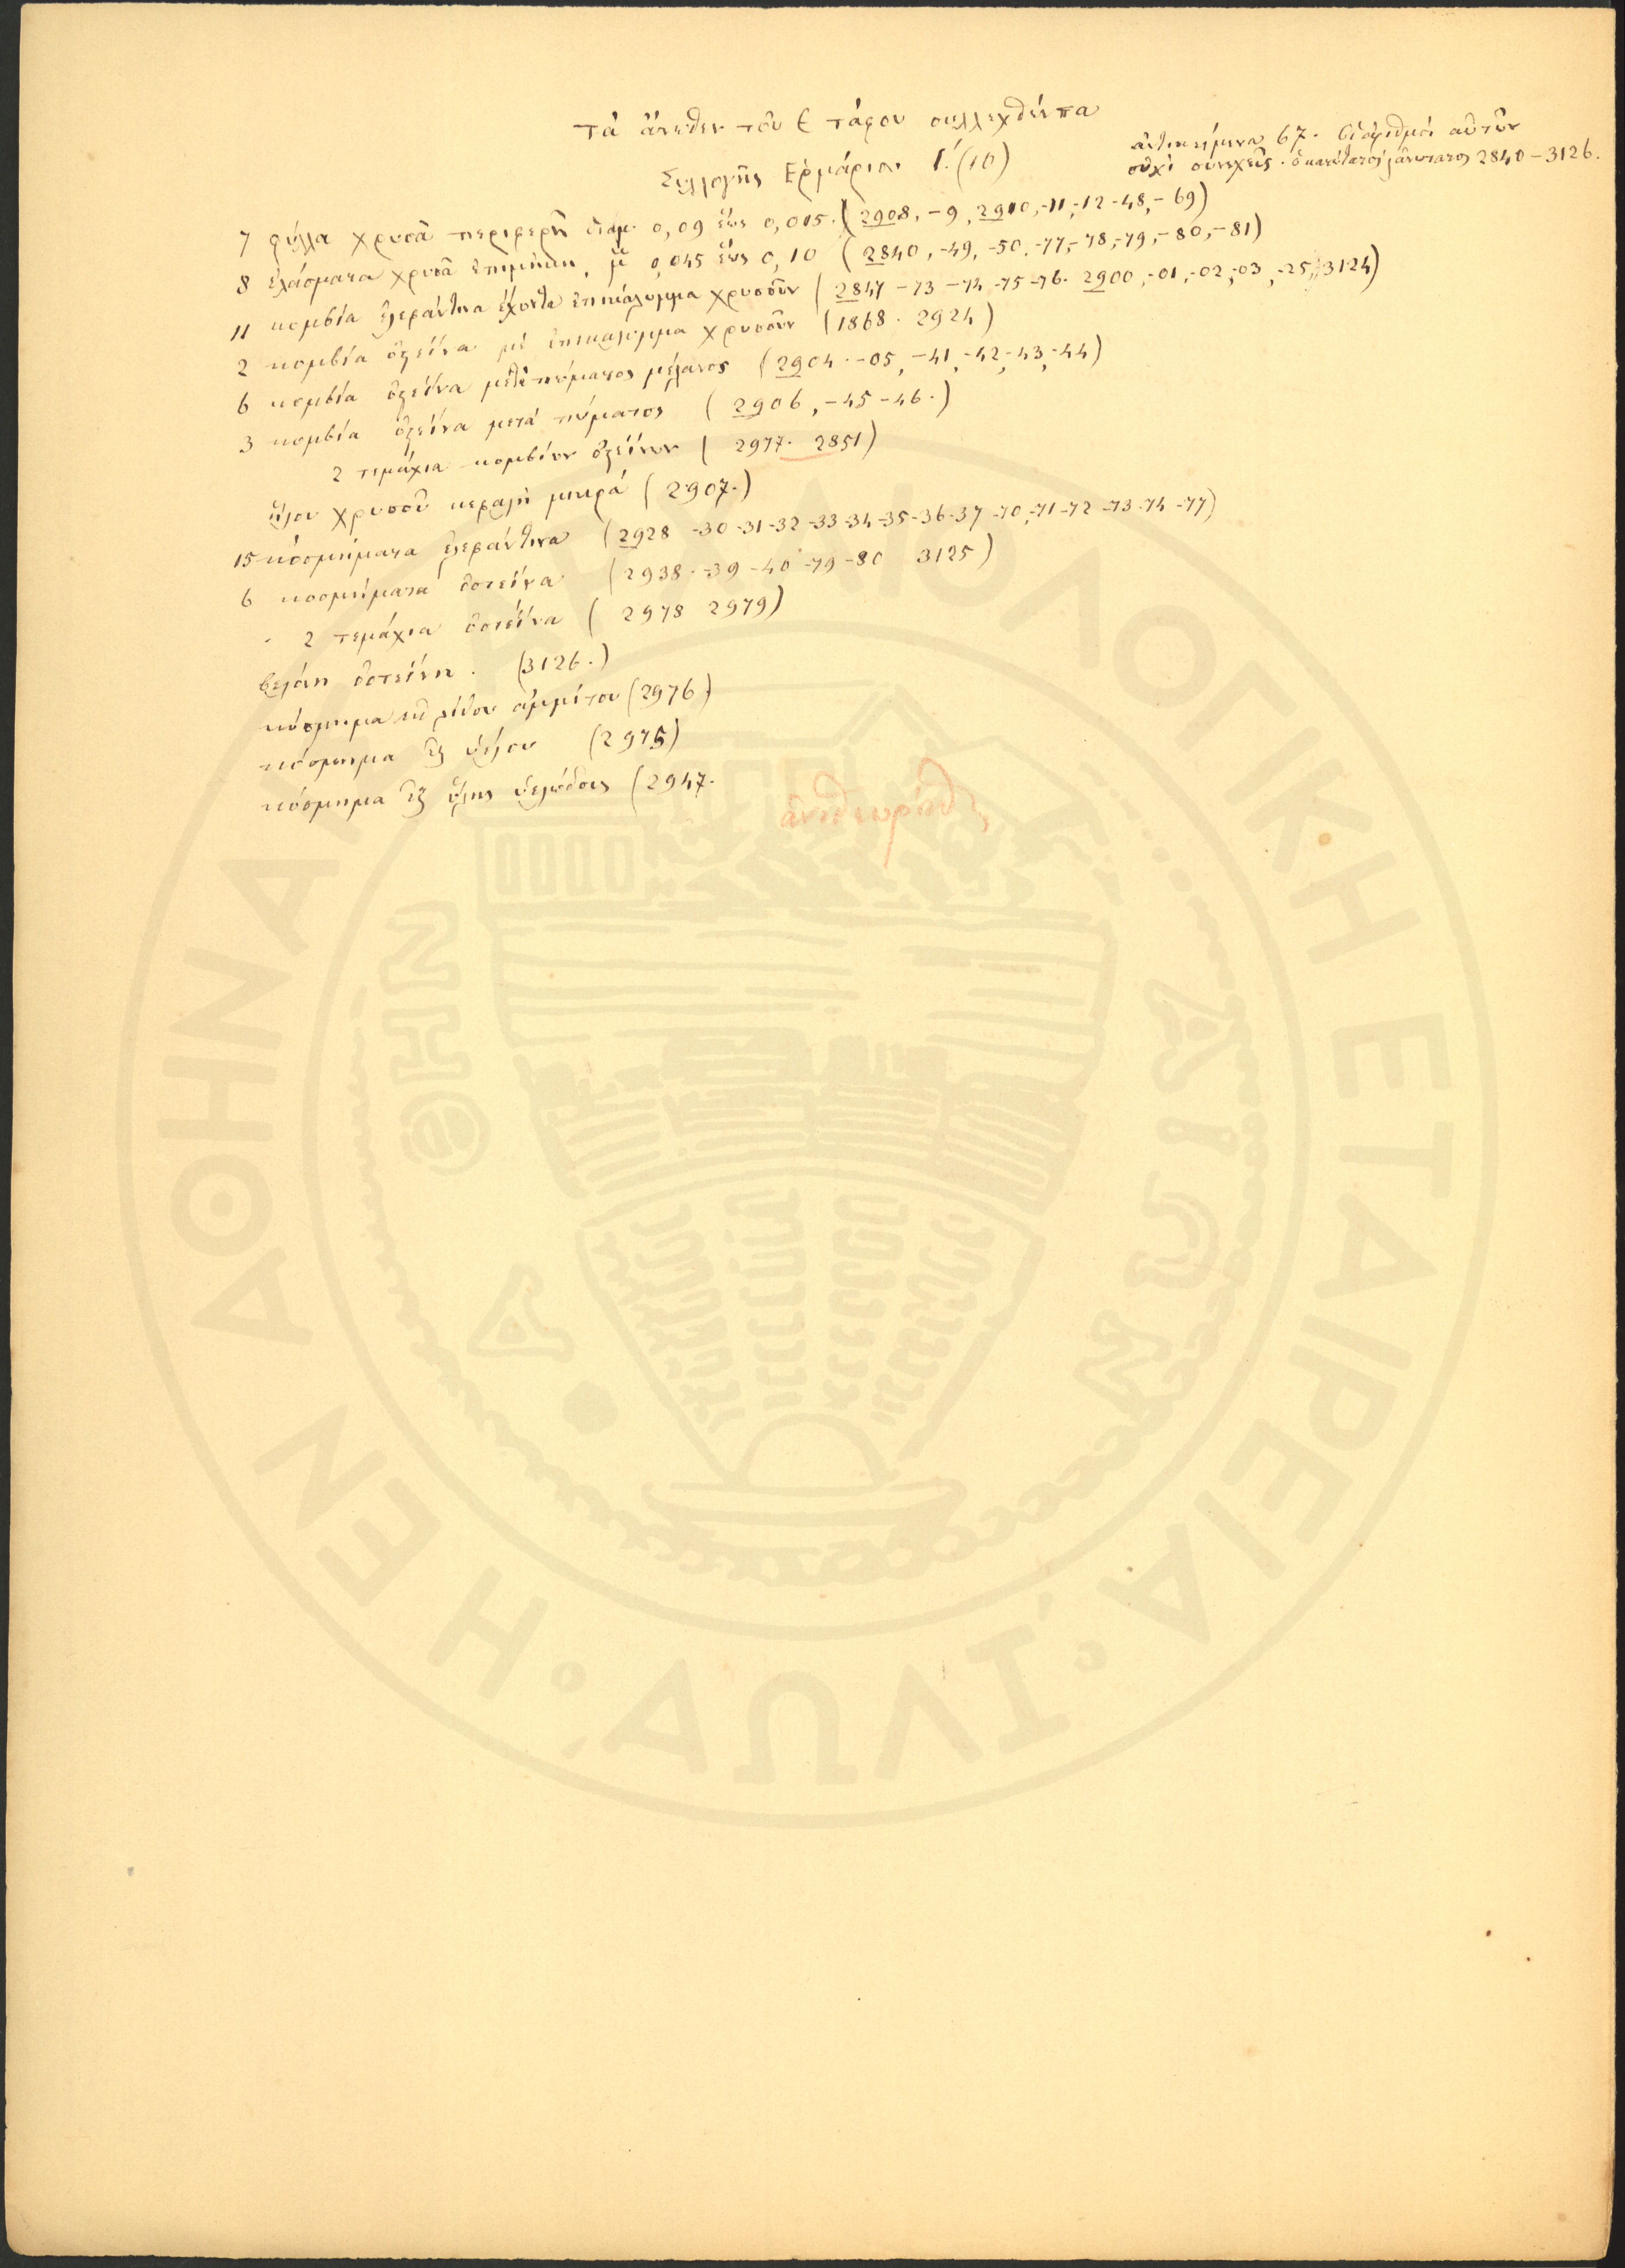 Τὰ ἄνωθεν τοῦ Ε τάφου συλλεχθέντα
Συλλογῆς Ερμάριον Γ΄. (10)
ἀντικείμενα 67. Οἱ ἀριθμοὶ αὐτῶν
οὐχὶ συνεχεῖς. ὁ κατώτατος ἀνώτατος 2840 – 3126.
7 φύλλα χρυσᾶ περιφερῆ διαμ. 0,09 ἕως 0,015. (2908, -9, 2910, -11, -12 -48, -69)
8 ἐλάσματα χρυσᾶ ἐπιμήκη, μ 0,045 ἕως 0,10 (2840, -49, -50, -77, -78, -79, -80, -81)
11 κομβία ἐλεφάντινα ἔχοντα ἐπικάλυμμα χρυσοῦν (2847 -73 -74 -75 -76. 2900, -01, -02, -03, -25, 3124)
2 κομβία ὀστεΐνα μὲ ἐπικάλυμμα χρυσοῦν (1868. 2924)
6 κομβία ὀστεΐνα μετὰ πώματος μέλανος (2904. -05, -41, -42, -43, -44)
3 κομβία ὀστεΐνα μετὰ πώματος (2906, -45 -46.)
2 τεμάχια κομβίων ὀστεΐνων (2977. 2851)
ἥλου χρυσοῦ κεφαλὴ μικρά (2907.)
15 κοσμήματα ἐλεφάντινα (2928 -30 -31 -32 -33 -34 -35 -36 -37 -70, -71 -72 -73 -74 -77)
6 κοσμήματα ὀστεΐνα (2938. -39 -40 -79 -80 3125)
2 τεμάχια ὀστεΐνα (2978 2979)
βελόνη ὀστεΐνη. (3126.)
κόσμημα ἐκ λίθου ἀμμίτου (2976)
κόσμημα ἐξ ὑέλου (2975)
κόσμημα ἐξ ὕλης ὑελώδους (2947.
ἀνεθεωρήθη
ΗΕΝ ΑΘΗΝΑΙΣ ΑΡΧΑΙΟΛΟΓΙΚΗ ΕΤΑΙΡΕΙΑ
ΑΘΗΝΑΙΩΝ